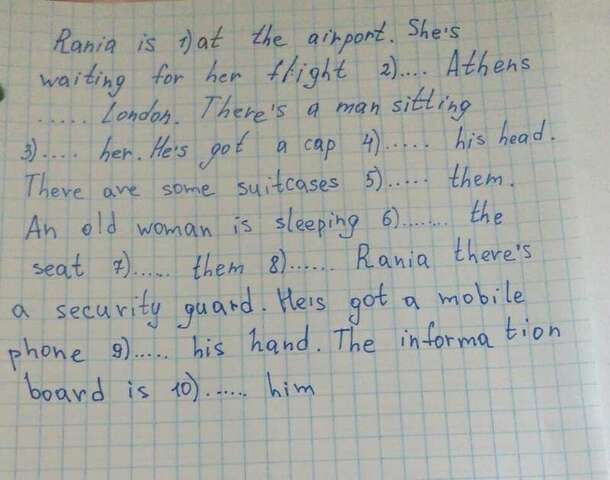 Rania is 1) at the airport. She's
waiting for her flight 2).... Athens
..... London. There's a man sitting
3).... her. He's got a cap 4)..... his head.
There are some suitcases 5)..... them.
An old woman is sleeping 6)....... the
seat 7)..... them 8)...... Rania there's
a security guard. He's got a mobile
phone 9)..... his hand. The information
board is 10)...... him